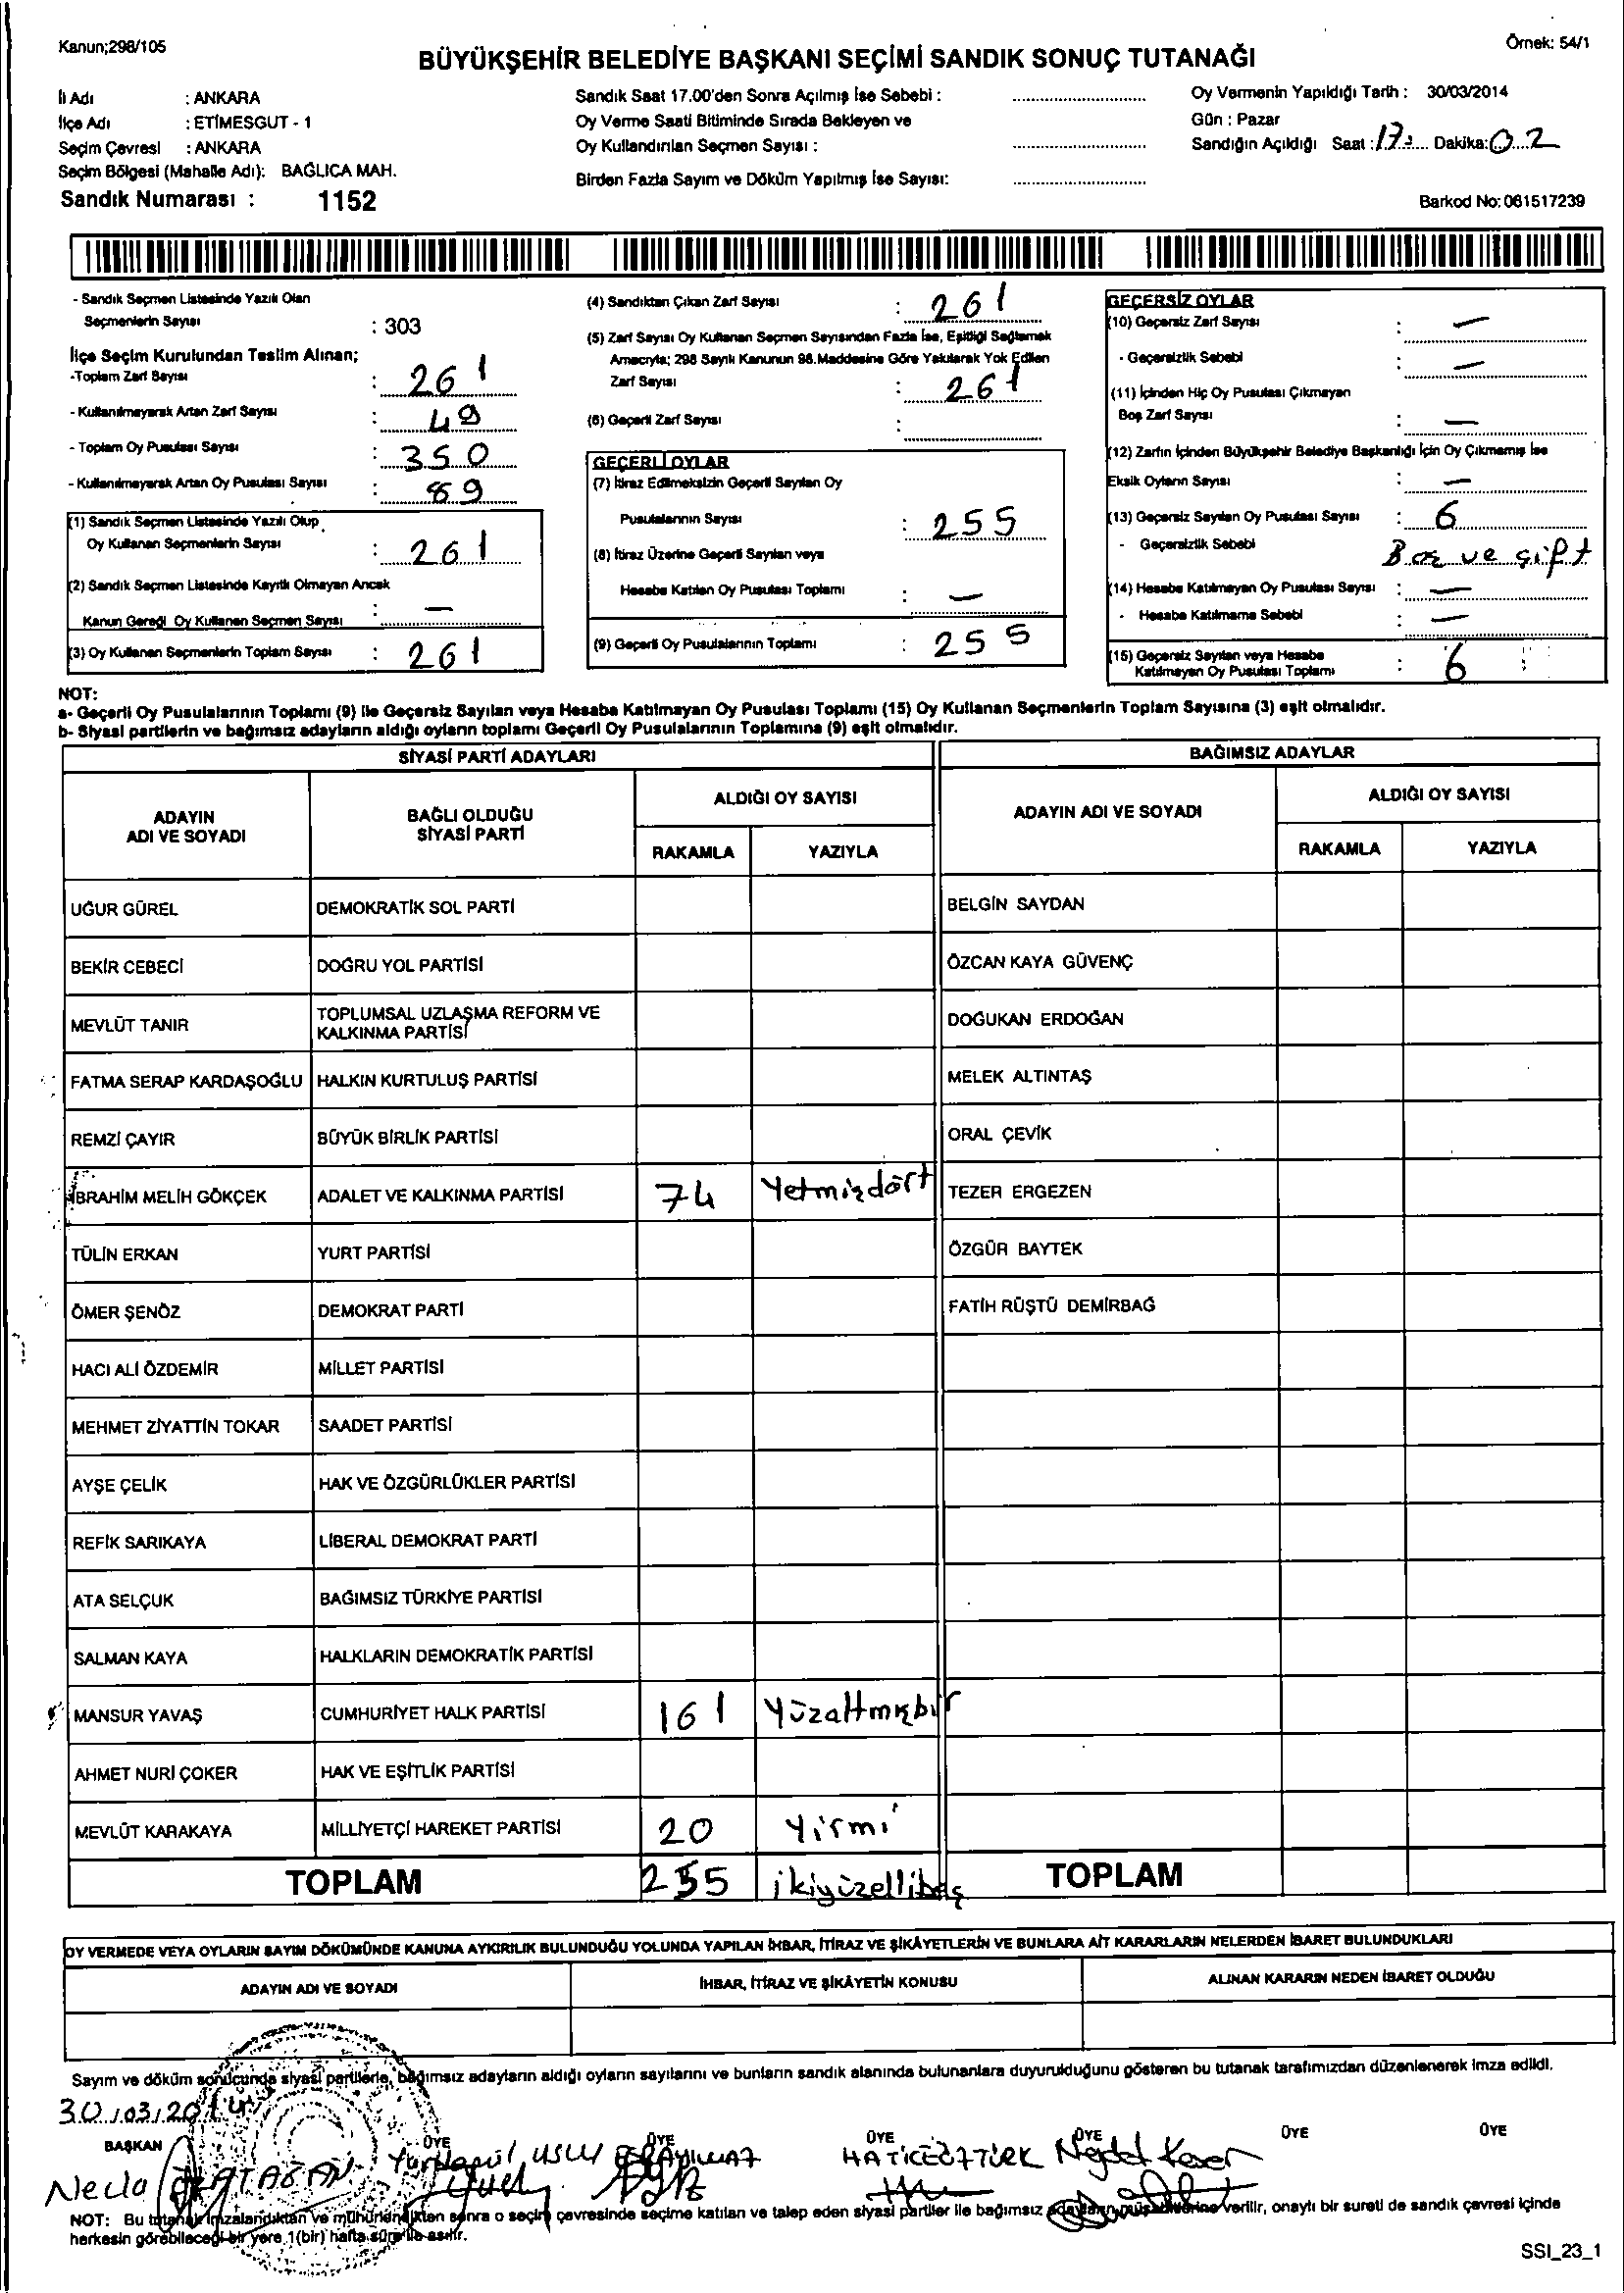 Kanun;298/105
Örnek: 54/1
BÜYÜKŞEHİR BELEDİYE BAŞKANI SEÇİMİ SANDIK SONUÇ TUTANAĞI
İl Adı : ANKARA
İlçe Adı : ETİMESGUT - 1
Seçim Çevresi : ANKARA
Seçim Bölgesi (Mahalle Adı): BAĞLICA MAH.
Sandık Numarası : 1152
Sandık Saat 17.00'den Sonra Açılmış İse Sebebi :
Oy Verme Saati Bitiminde Sırada Bekleyen ve
Oy Kullandırılan Seçmen Sayısı :
Birden Fazla Sayım ve Döküm Yapılmış İse Sayısı:
Oy Vermenin Yapıldığı Tarih : 30/03/2014
Gün : Pazar
Sandığın Açıldığı Saat : 17: Dakika: 02
Barkod No: 061517239
- Sandık Seçmen Listesinde Yazılı Olan
Seçmenlerin Sayısı : 303
İlçe Seçim Kurulundan Teslim Alınan;
-Toplam Zarf Sayısı : 261
- Kullanılmayarak Artan Zarf Sayısı : 49
- Toplam Oy Pusulası Sayısı : 350
- Kullanılmayarak Artan Oy Pusulası Sayısı : 89
(1) Sandık Seçmen Listesinde Yazılı Olup
Oy Kullanan Seçmenlerin Sayısı : 261
(2) Sandık Seçmen Listesinde Kayıtlı Olmayan Ancak
Kanun Gereği Oy Kullanan Seçmen Sayısı : —
(3) Oy Kullanan Seçmenlerin Toplam Sayısı : 261
(4) Sandıktan Çıkan Zarf Sayısı : 261
(5) Zarf Sayısı Oy Kullanan Seçmen Sayısından Fazla İse, Eşitliği Sağlamak
Amacıyla; 298 Sayılı Kanunun 98.Maddesine Göre Yakılarak Yok Edilen
Zarf Sayısı : 261
(6) Geçerli Zarf Sayısı :
GEÇERLİ OYLAR
(7) İtiraz Edilmeksizin Geçerli Sayılan Oy
Pusulalarının Sayısı : 255
(8) İtiraz Üzerine Geçerli Sayılan veya
Hesaba Katılan Oy Pusulası Toplamı : —
(9) Geçerli Oy Pusulalarının Toplamı : 255
GEÇERSİZ OYLAR
(10) Geçersiz Zarf Sayısı : —
- Geçersizlik Sebebi : —
(11) İçinden Hiç Oy Pusulası Çıkmayan
Boş Zarf Sayısı : —
(12) Zarfın İçinden Büyükşehir Belediye Başkanlığı İçin Oy Çıkmamış İse
Eksik Oyların Sayısı : —
(13) Geçersiz Sayılan Oy Pusulası Sayısı : 6
- Geçersizlik Sebebi Boş ve çift
(14) Hesaba Katılmayan Oy Pusulası Sayısı : —
- Hesaba Katılmama Sebebi : —
(15) Geçersiz Sayılan veya Hesaba
Katılmayan Oy Pusulası Toplamı : 6
NOT:
a- Geçerli Oy Pusulalarının Toplamı (9) ile Geçersiz Sayılan veya Hesaba Katılmayan Oy Pusulası Toplamı (15) Oy Kullanan Seçmenlerin Toplam Sayısına (3) eşit olmalıdır.
b- Siyasi partilerin ve bağımsız adayların aldığı oyların toplamı Geçerli Oy Pusulalarının Toplamına (9) eşit olmalıdır.
SİYASİ PARTİ ADAYLARI BAĞIMSIZ ADAYLAR
ADAYIN ADI VE SOYADI BAĞLI OLDUĞU SİYASİ PARTİ ALDIĞI OY SAYISI ADAYIN ADI VE SOYADI ALDIĞI OY SAYISI
RAKAMLA YAZIYLA RAKAMLA YAZIYLA
UĞUR GÜREL DEMOKRATİK SOL PARTİ BELGİN SAYDAN
BEKİR CEBECİ DOĞRU YOL PARTİSİ ÖZCAN KAYA GÜVENÇ
MEVLÜT TANIR TOPLUMSAL UZLAŞMA REFORM VE KALKINMA PARTİSİ DOĞUKAN ERDOĞAN
FATMA SERAP KARDAŞOĞLU HALKIN KURTULUŞ PARTİSİ MELEK ALTINTAŞ
REMZİ ÇAYIR BÜYÜK BİRLİK PARTİSİ ORAL ÇEVİK
İBRAHİM MELİH GÖKÇEK ADALET VE KALKINMA PARTİSİ 74 Yetmişdört TEZER ERGEZEN
TÜLİN ERKAN YURT PARTİSİ ÖZGÜR BAYTEK
ÖMER ŞENÖZ DEMOKRAT PARTİ FATİH RÜŞTÜ DEMİRBAĞ
HACI ALİ ÖZDEMİR MİLLET PARTİSİ
MEHMET ZİYATTİN TOKAR SAADET PARTİSİ
AYŞE ÇELİK HAK VE ÖZGÜRLÜKLER PARTİSİ
REFİK SARIKAYA LİBERAL DEMOKRAT PARTİ
ATA SELÇUK BAĞIMSIZ TÜRKİYE PARTİSİ
SALMAN KAYA HALKLARIN DEMOKRATİK PARTİSİ
MANSUR YAVAŞ CUMHURİYET HALK PARTİSİ 161 Yüzaltmışbir
AHMET NURİ ÇOKER HAK VE EŞİTLİK PARTİSİ
MEVLÜT KARAKAYA MİLLİYETÇİ HAREKET PARTİSİ 20 Yirmi
TOPLAM 255 ikiyüzellibeş TOPLAM
OY VERMEDE VEYA OYLARIN SAYIM DÖKÜMÜNDE KANUNA AYKIRILIK BULUNDUĞU YOLUNDA YAPILAN İHBAR, İTİRAZ VE ŞİKÂYETLERİN VE BUNLARA AİT KARARLARIN NELERDEN İBARET BULUNDUKLARI
ADAYIN ADI VE SOYADI İHBAR, İTİRAZ VE ŞİKÂYETİN KONUSU ALINAN KARARIN NEDEN İBARET OLDUĞU
Sayım ve döküm sonucunda siyasi partilerle, bağımsız adayların aldığı oyların sayılarını ve bunların sandık alanında bulunanlara duyurulduğunu gösteren bu tutanak tarafımızdan düzenlenerek imza edildi.
30/03/2014
BAŞKAN ÜYE ÜYE ÜYE ÜYE ÜYE ÜYE
Necla USLU HATİCE ÖZTÜRK
NOT: Bu tutanak imzalandıktan ve mühürlendikten sonra o seçim çevresinde seçime katılan ve talep eden siyasi partiler ile bağımsız adayların müşahitlerine verilir, onaylı bir sureti de sandık çevresi içinde
herkesin görebileceği bir yere 1(bir) hafta süre ile asılır.
SSI_23_1